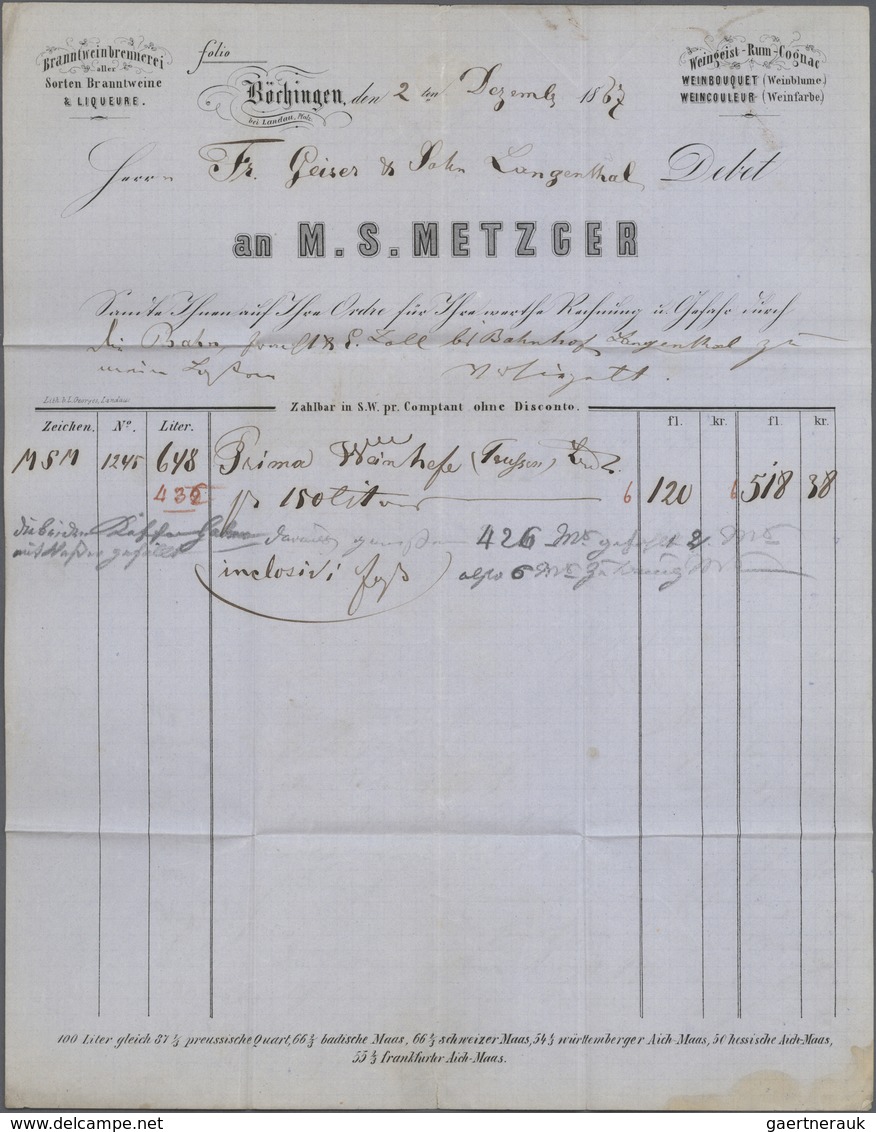 Branntweinbrennerei
aller
Sorten Branntweine
& LIQUEURE.
folio
Böchingen, den 2 ten Dezemb 1867
bei Landau, Pfalz
Weingeist-Rum-Cognac
WEINBOUQUET (Weinblume)
WEINCOULEUR (Weinfarbe)
Herrn Fr. Geiser & Sohn Langenthal Debet
an M. S. METZGER
Sandte Ihnen auf Ihre Ordre für Ihre werthe Rechnung u. Gefahr durch
die Bahn, Zoll bei Bahnhof Langenthal zu
Lith. b. L. Georges, Landau
Zahlbar in S.W. pr. Comptant ohne Disconto.
Zeichen. No. Liter. fl. kr. fl. kr.
MSM 1245 648 Prima Weinhefe (Trusen)
432 pr 150 Liter 6 120 6 518 38
die beiden
426
inclosivi faß
also 6
100 Liter gleich 87 1/3 preussische Quart, 66 2/3 badische Maas, 66 2/3 schweizer Maas, 54 1/2 württemberger Aich-Maas, 50 hessische Aich-Maas,
55 1/2 frankfurter Aich-Maas.
gaertnerauk